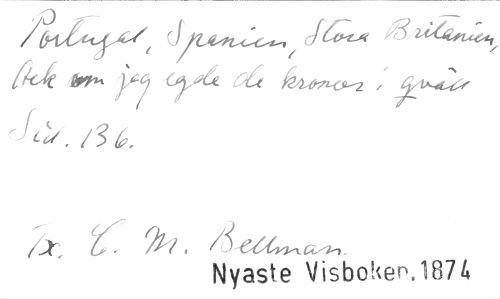 Portugal, Spanien, Stora Britanien,
Ack om jag egde de kronor i qväll
Sid. 136.
Tx. C. M. Bellman.
Nyaste Visboken. 1874